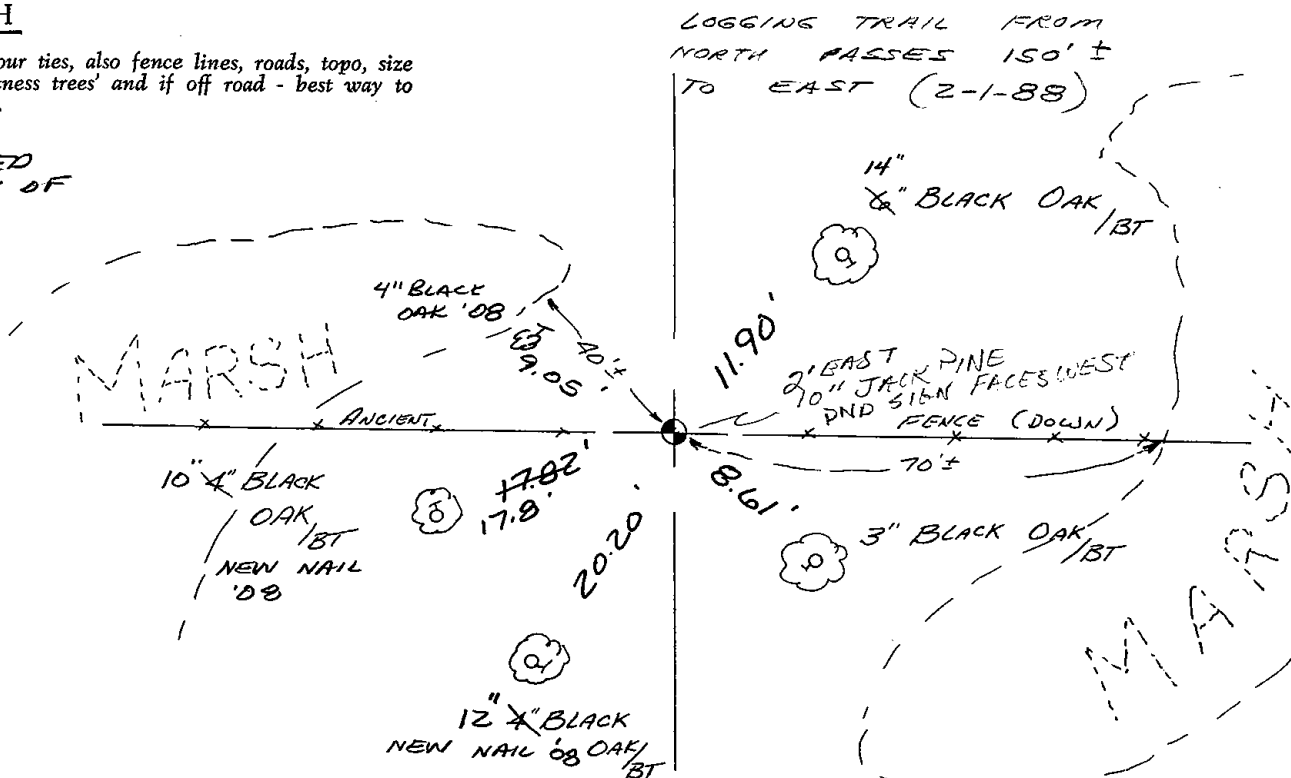 H
our ties, also fence lines, roads, topo, size
ness trees' and if off road - best way to
ED
OF
LOGGING TRAIL FROM
NORTH PASSES 150' ±
TO EAST (2-1-88)
14"
6" BLACK OAK
/BT
4" BLACK
OAK '08
9.05'
40'±
11.90'
2' EAST
10" JACK PINE
DND SIGN FACES WEST
MARSH
ANCIENT
FENCE (DOWN)
70'±
10" 4" BLACK
OAK
/BT
NEW NAIL
'08
17.82'
17.8'
8.61'
3" BLACK OAK
/BT
20.20'
12" 4" BLACK
NEW NAIL '08 OAK/
BT
MARSH